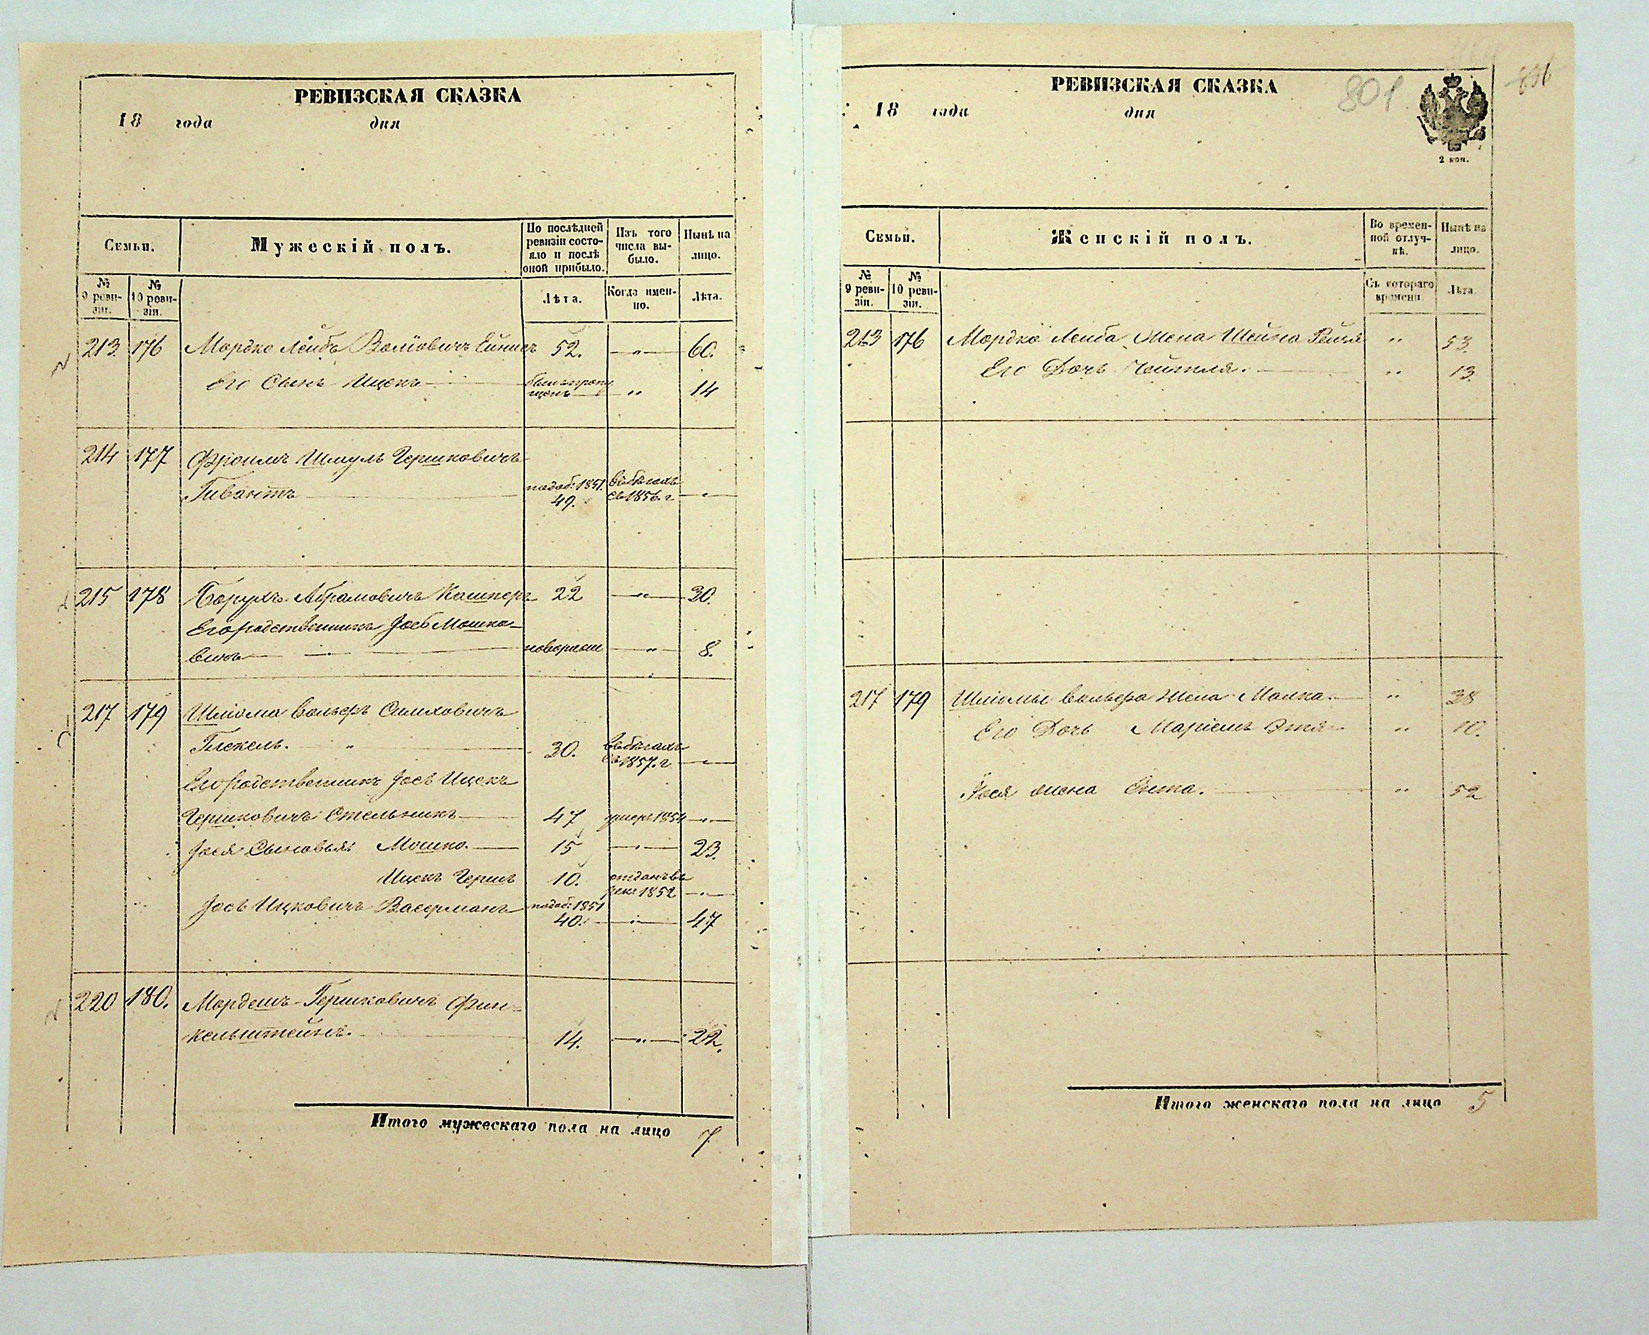 РЕВИЗСКАЯ СКАЗКА
18 года дня
Семьи.
Мужескій полъ.
По послѣдней ревизіи состояло и послѣ оной прибыло.
Изъ того числа выбыло.
Нынѣ на лицо.
№ 9 ревизіи.
№ 10 ревизіи.
Лѣта.
Когда именно.
Лѣта.
213 176 Мордко Лейбъ Волїовичъ 52. —"— 60.
Его Сынъ Ицекъ — " 14
214 177 Фроимъ Шмуль Гершковичъ
Гивантъ — 1851. 49. въ бѣгахъ съ 1856. г —"—
215 178 Борухъ Абрамовичъ Кашперъ 22 —"— 30.
Его родственникъ Іосъ Мошко-
вичъ — —"— 8.
217 179 Шліома Вольфъ Симховичъ
— 30. въ бѣгахъ съ 1857. г —"—
Его родственникъ Іосъ Ицекъ
Гершковичъ Стельникъ — 47 умеръ 1854 —"—
Іося Сыновья: Мошко. — 15 —"— 23.
Ицекъ Гершъ 10. отданъ въ рек. 1852 —"—
Іосъ Ицковичъ Васерманъ — 1851 40. —"— 47
220 180. Гершковичъ Фин-
кельштейнъ. 14. —"— 22.
Итого мужескаго пола на лицо 7
РЕВИЗСКАЯ СКАЗКА
801
18 года дня
2 коп.
Семьи.
Женскій полъ.
Во временной отлучкѣ.
Нынѣ на лицо.
№ 9 ревизіи.
№ 10 ревизіи.
Съ котораго времени
Лѣта.
213 176 Мордко Лейба Жена Шейна Рейзя " 53.
Его Дочь — " 13.
217 179 Шліомы Вольфа Жена Малка. — " 38
Его Дочь Маріемъ Этя — " 10.
Іося жена — " 52
Итого женскаго пола на лицо 5